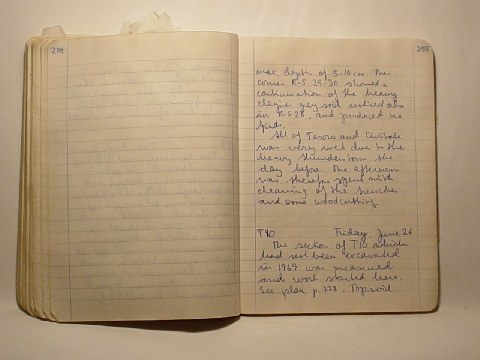 254
255
max. depth of 5-10 cm. The
corner R-S 29-30 showed a
continuation of the heavy
clayish grey soil noticed also
in R-S 28, and produced no
finds.
All of Tesoro and Civitate
was very wet due to the
heavy thunderstorm the
day before. The afternoon
was therefore spent with
cleaning of the trenches
and some woodcutting.
T90 Friday, June 26
The section of T90 which
had not been excavated
in 1969 was measured
and work started here.
See plan p. 228. Topsoil